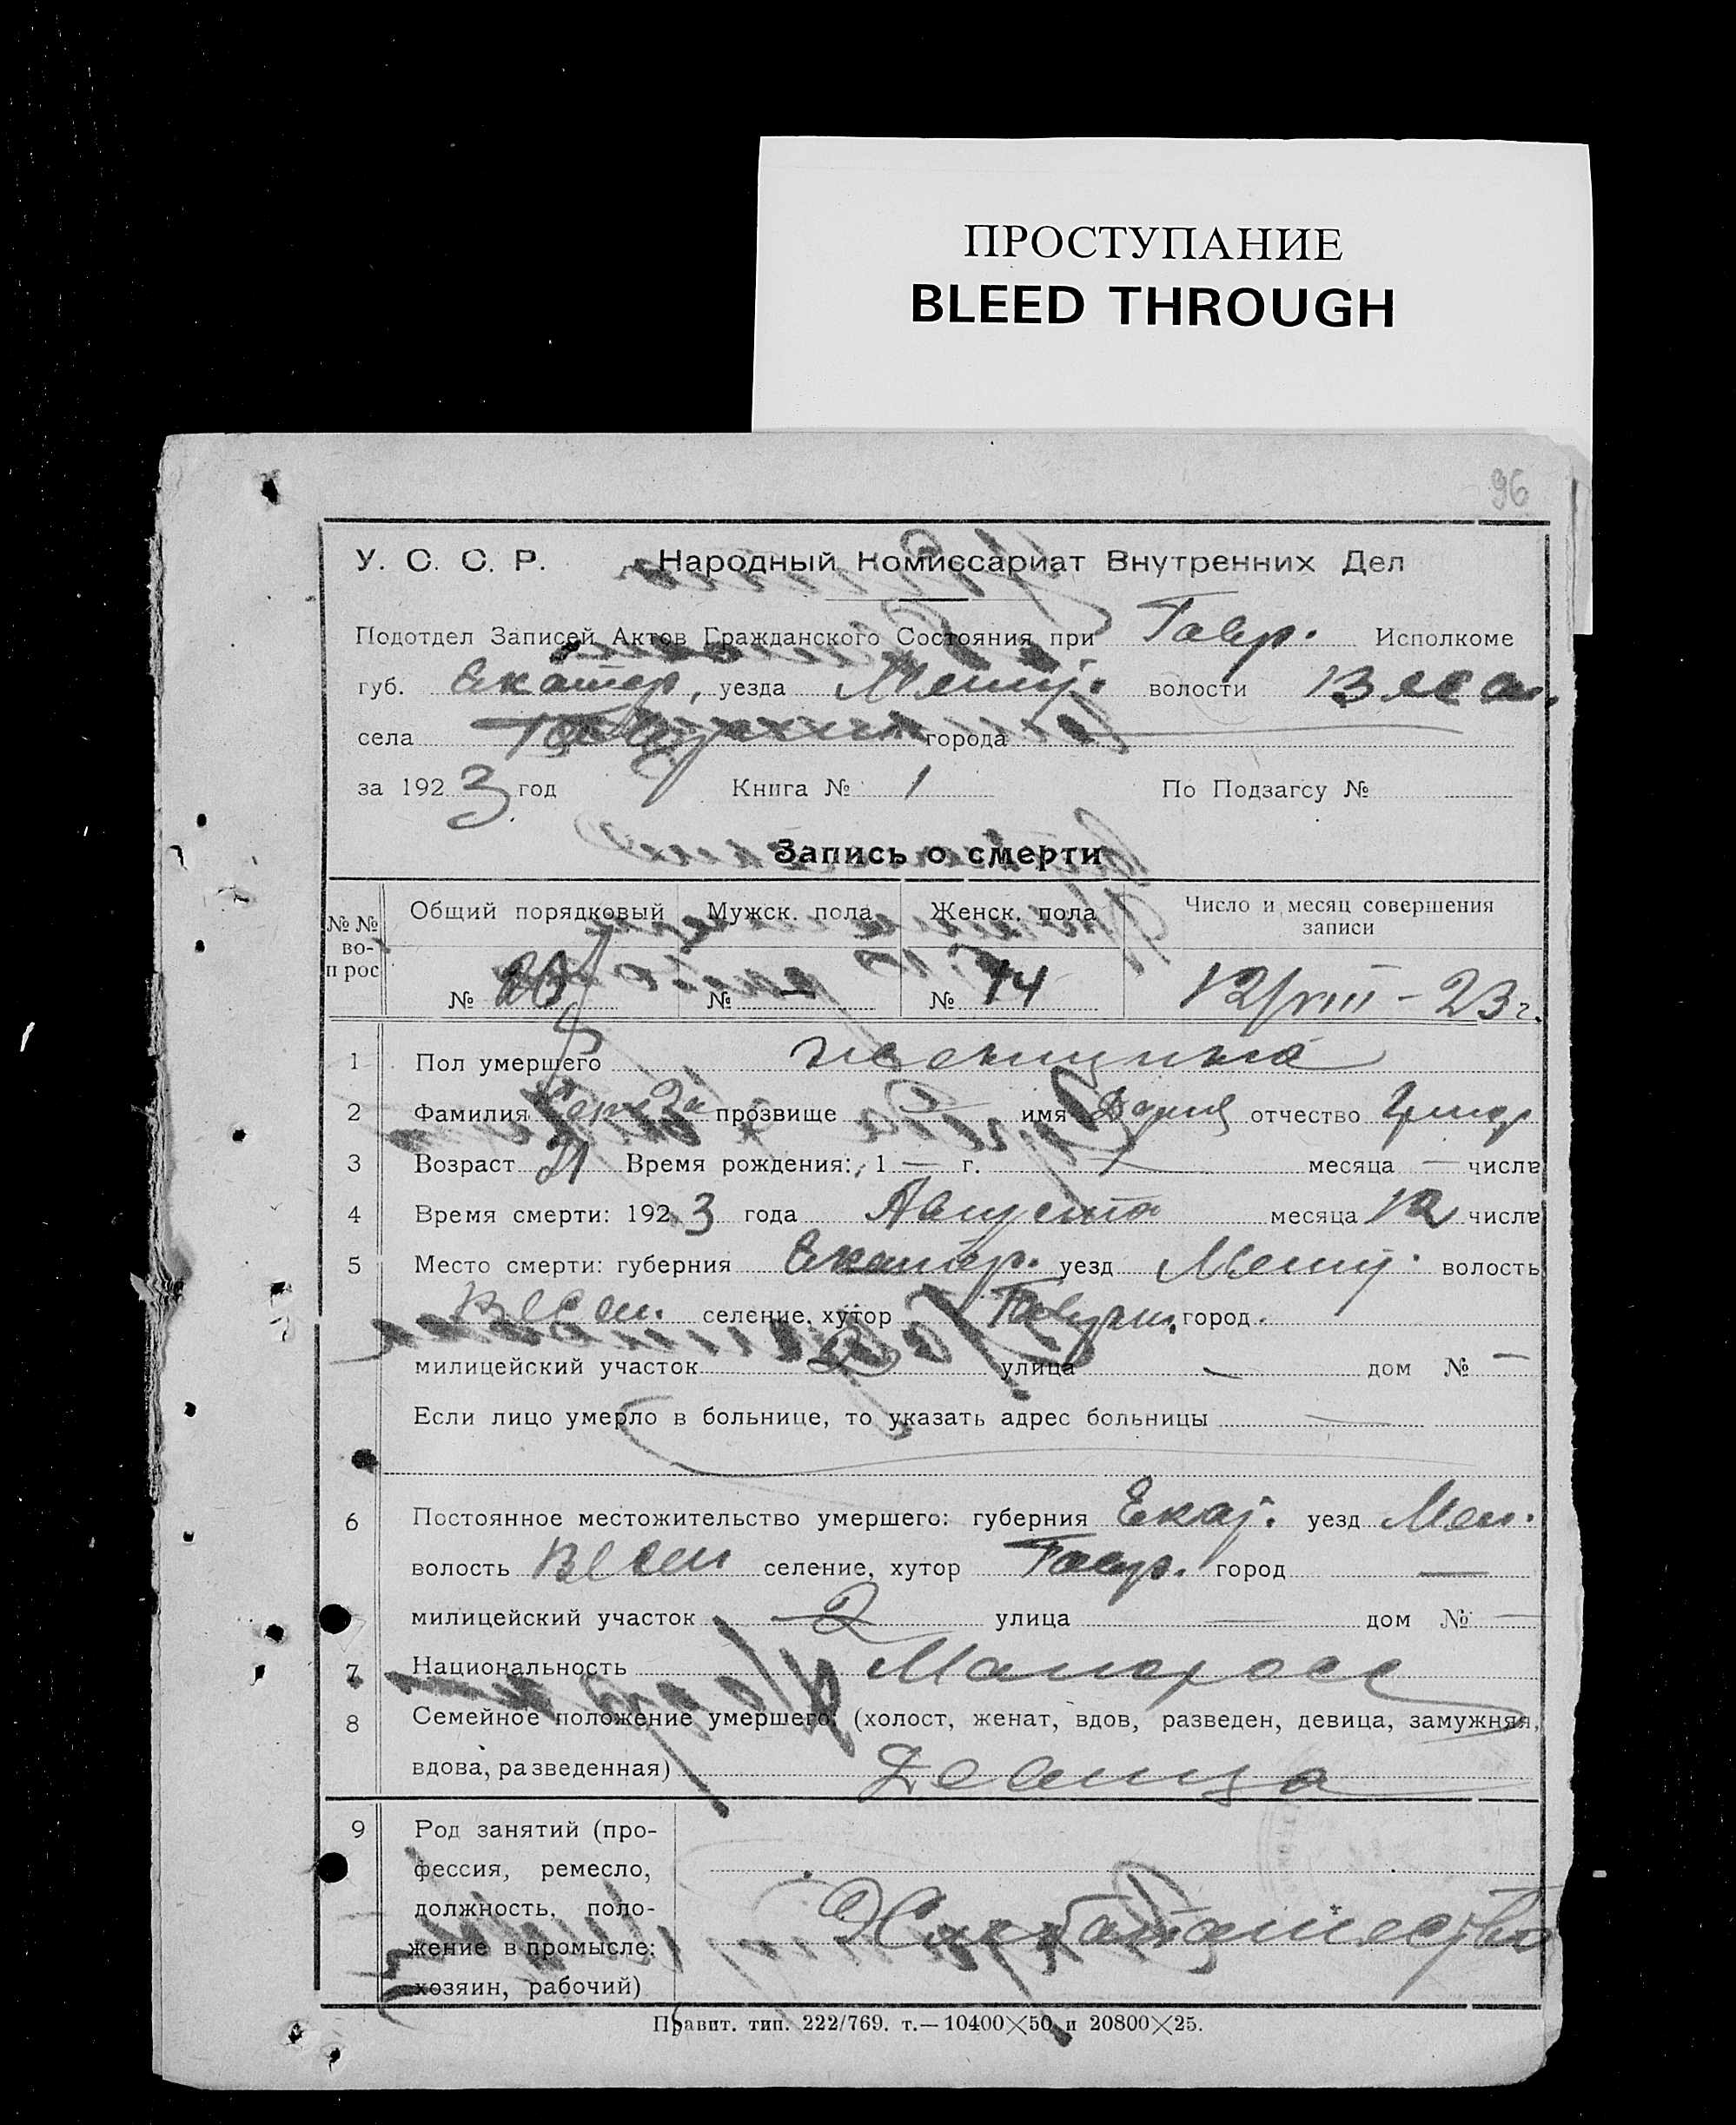 ПРОСТУПАНИЕ
BLEED THROUGH
96
У. С. С. Р. Народный Комиссариат Внутренних Дел
Подотдел Записей Актов Гражданского Состояния при Гавр. Исполкоме
губ. Екатер, уезда волости
села города
за 1923 год Книга № 1 По Подзагсу №
Запись о смерти
№ № во-п рос Общий порядковый Мужск. пола Женск. пола Число и месяц совершения записи
№ № — № 14 12/VIII – 23 г.
1 Пол умершего женщина
2 Фамилия прозвище — имя Дария отчество Григор
3 Возраст 21 Время рождения: 1 — г. — месяца — числа
4 Время смерти: 1923 года Августа месяца 12 числа
5 Место смерти: губерния Екатер. уезд волость
Весел. селение, хутор город
милицейский участок 2 улица — дом № —
Если лицо умерло в больнице, то указать адрес больницы —
6 Постоянное местожительство умершего: губерния Екат. уезд Мел.
волость Весел селение, хутор Гавр. город —
милицейский участок 2 улица — дом № —
7 Национальность Малоросс
8 Семейное положение умершего: (холост, женат, вдов, разведен, девица, замужняя,
вдова, разведенная) Девица
9 Род занятий (про-
фессия, ремесло,
должность, поло-
жение в промысле:
хозяин, рабочий)
Хлебопашество
Правит. тип. 222/769. т.—10400×50 и 20800×25.